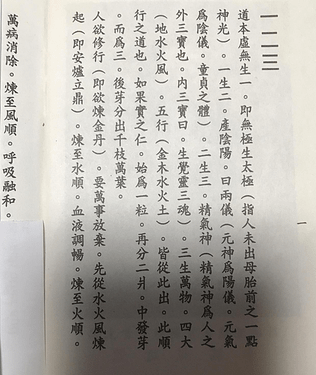 一
一一二三
道本虛無生一。即無極生太極（指人未出母胎前之一點
神光）。一生二。產陰陽。曰兩儀（元神爲陽儀。元氣
爲陰儀。童貞之體）。二生三。精氣神（精氣神爲人之
外三寶也。內三寶曰。生覺靈三魂）。三生萬物。四大
（地水火風）。五行（金木水火土）。皆從此出。此順
行之道也。如果實之仁。始爲一粒。再分二爿。中發芽
。而爲三。後芽分出千枝萬葉。
人欲修行（即欲煉金丹）。要萬事放棄。先從水火風煉
起（即安爐立鼎）。煉至水順。血液調暢。煉至火順。
萬病消除。煉至風順。呼吸融和。